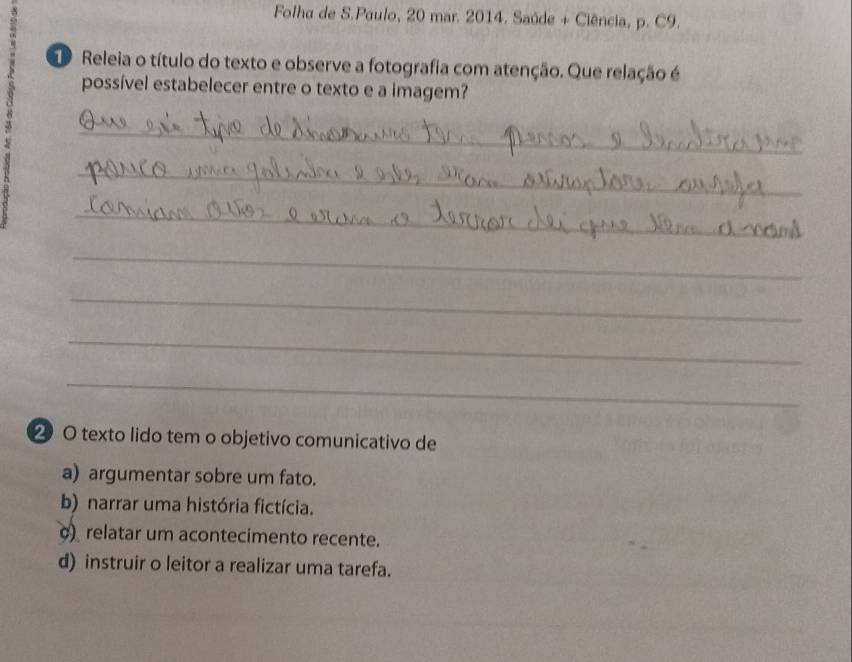 Folha de S.Paulo, 20 mar. 2014. Saúde + Ciência, p. C9.
1 Releia o título do texto e observe a fotografia com atenção. Que relação é
possível estabelecer entre o texto e a imagem?
Que tipo de dinossauro tem penas e
pouco uma galinha e eles eram ou seja
comiam aves e eram o terror dei que
2 O texto lido tem o objetivo comunicativo de
a) argumentar sobre um fato.
b) narrar uma história fictícia.
c) relatar um acontecimento recente.
d) instruir o leitor a realizar uma tarefa.
Reprodução proibida. Art. 184 do Código Penal e Lei 9.610 de 1